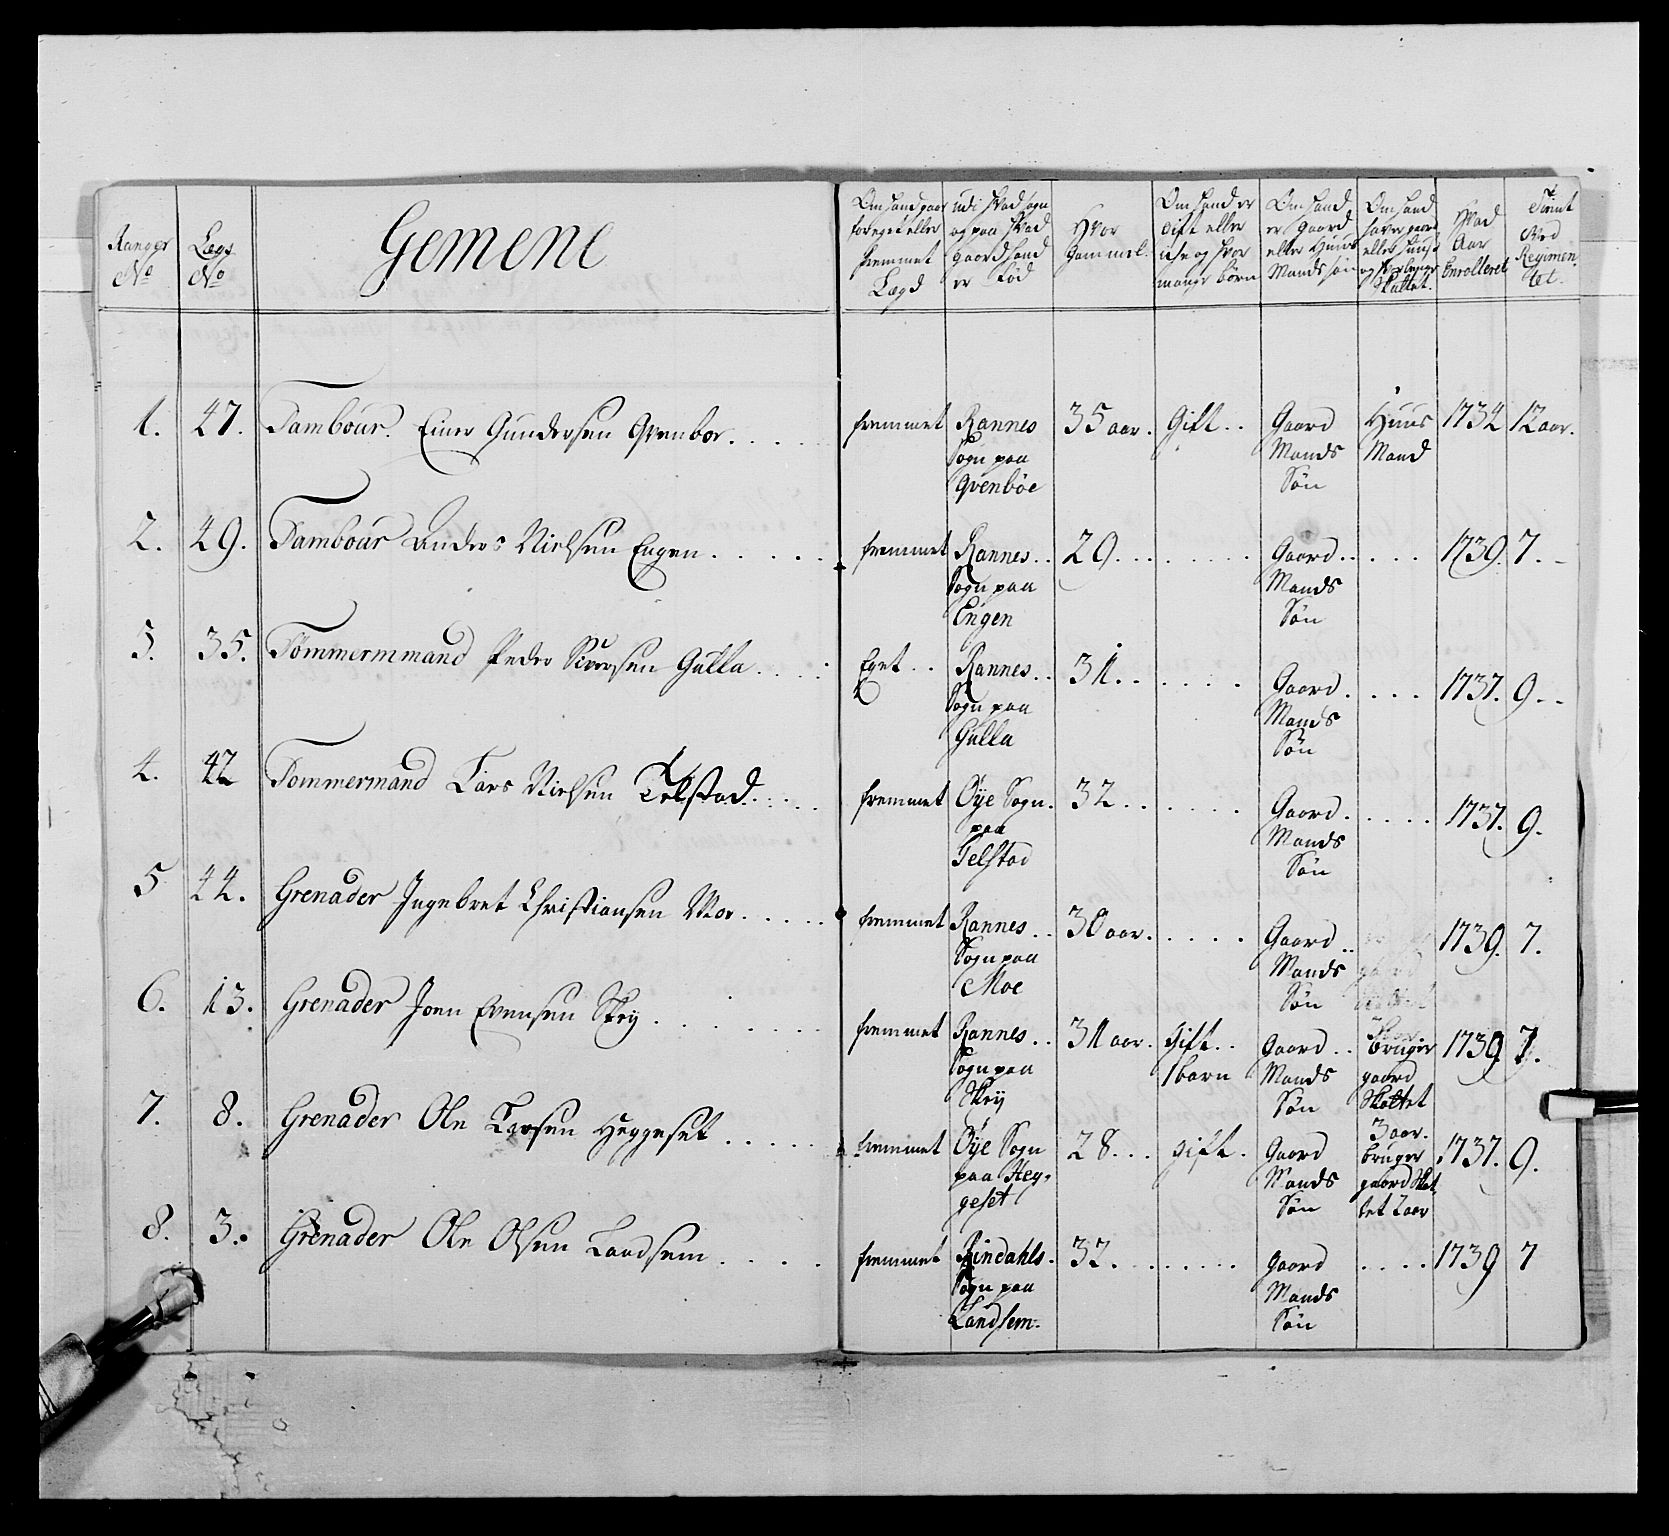 Ranger
No
Lægs
No
Gemene
Om hand paa
for eget eller
fremmet
Lægd
udi hvad sogn
og paa hvad
gaard hand
er Fød
Hvor
Gammel.
Om hand er
Gift eller
iche og hvor
mange børn
Om hand
er Gaard
eller Huus
Mands søn
Om hand
haver gaard
eller huus
og hvor længe
skattet.
Hvad
Aar
Enrolleret
Tient
Ved
Regimen
tet.
1. 47. Tambour. Einer Gundersen Qvenboe. . . . . fremmet Rannes 35 aar. Gift . . Gaard Huus 1734 12 aar.
Sogn paa Mands Mand
Qvenböe Søn
2. 49. Tambour Anders Nielsen Engen . . . . . fremmet Rannes . . 29. . . . . . . . Gaard . . . . . . 1739. 7. . -
Sogn paa Mands
Engen Søn
3. 35. Tömmermmand Peder Siversen Gulla . . . . Eget . . Rannes . . 31. . . . . . . Gaard . . . . . 1737. 9 - -
Sogn paa Mands
Gulla Søn
4. 42 Tömmermand Lars Nielsen Telstad . . . . . fremmet Øye Sogn . 32 . . . . . . . Gaard . . . . . . 1737. 9.
paa Mands
Telstad Søn
5 44. Grenader Ingebret Christiansen Moe . . . . . fremmet Rannes . . 30 aar. . . . . . Gaard . . 1739. 7.
Sogn paa Mands
Moe Søn
6. 13. Grenader Joen Evensen Skey . . . . . . . fremmet Rannes . . 31 aar. Gift . . Gaard . . bruger 1739 7.
Sogn paa 1 barn Mands gaard
Skey Søn Skattet
3 aar.
7. 8. Grenader Ole Larsen Heggeset . . . . . fremmet Øye Sogn 28. . . gift . Gaard bruger 1737. 9.
paa Heg- Mands gaard Skat
geset Søn tet 2 aar
8. 3. Grenader Ole Olsen Landsem . . . . fremmet Rindahls . 32. . . . . . . . Gaard . . . . 1739 7
Sogn paa Mands
Landsem. Søn